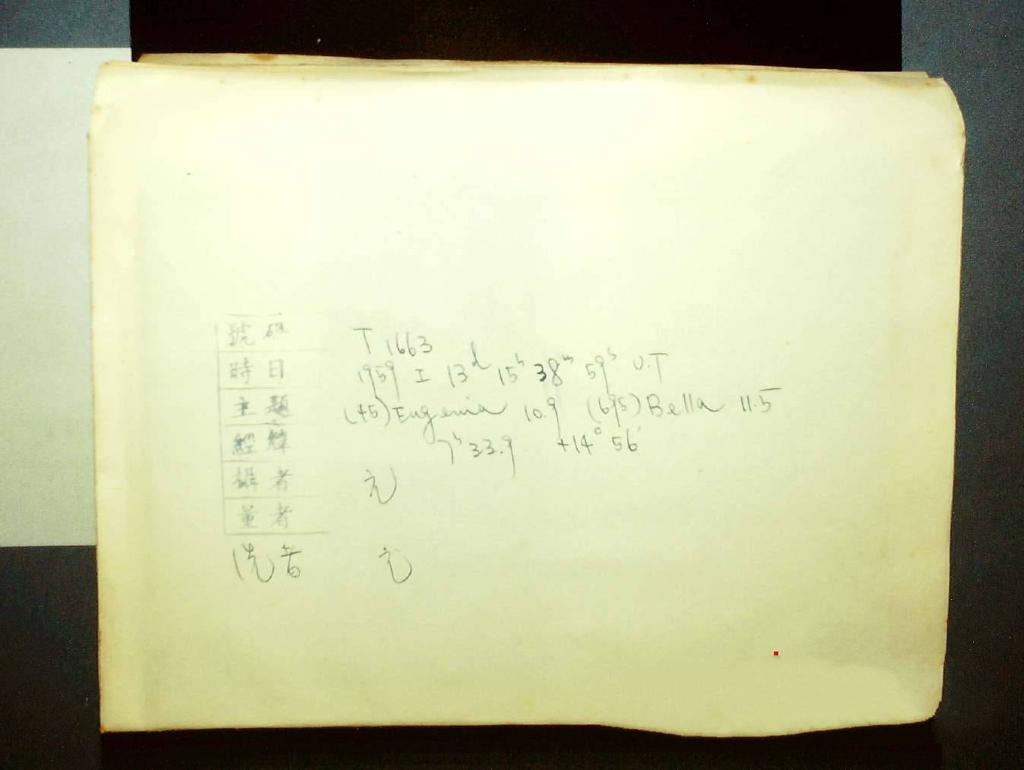 號碼 T 1663
時日 1959 I 13d 15h 38m 59s U.T
主題 (45) Eugenia 10.9 (695) Bella 11.5
經緯 7h 33.9 +14° 56'
攝者 元
量者
洗者 元